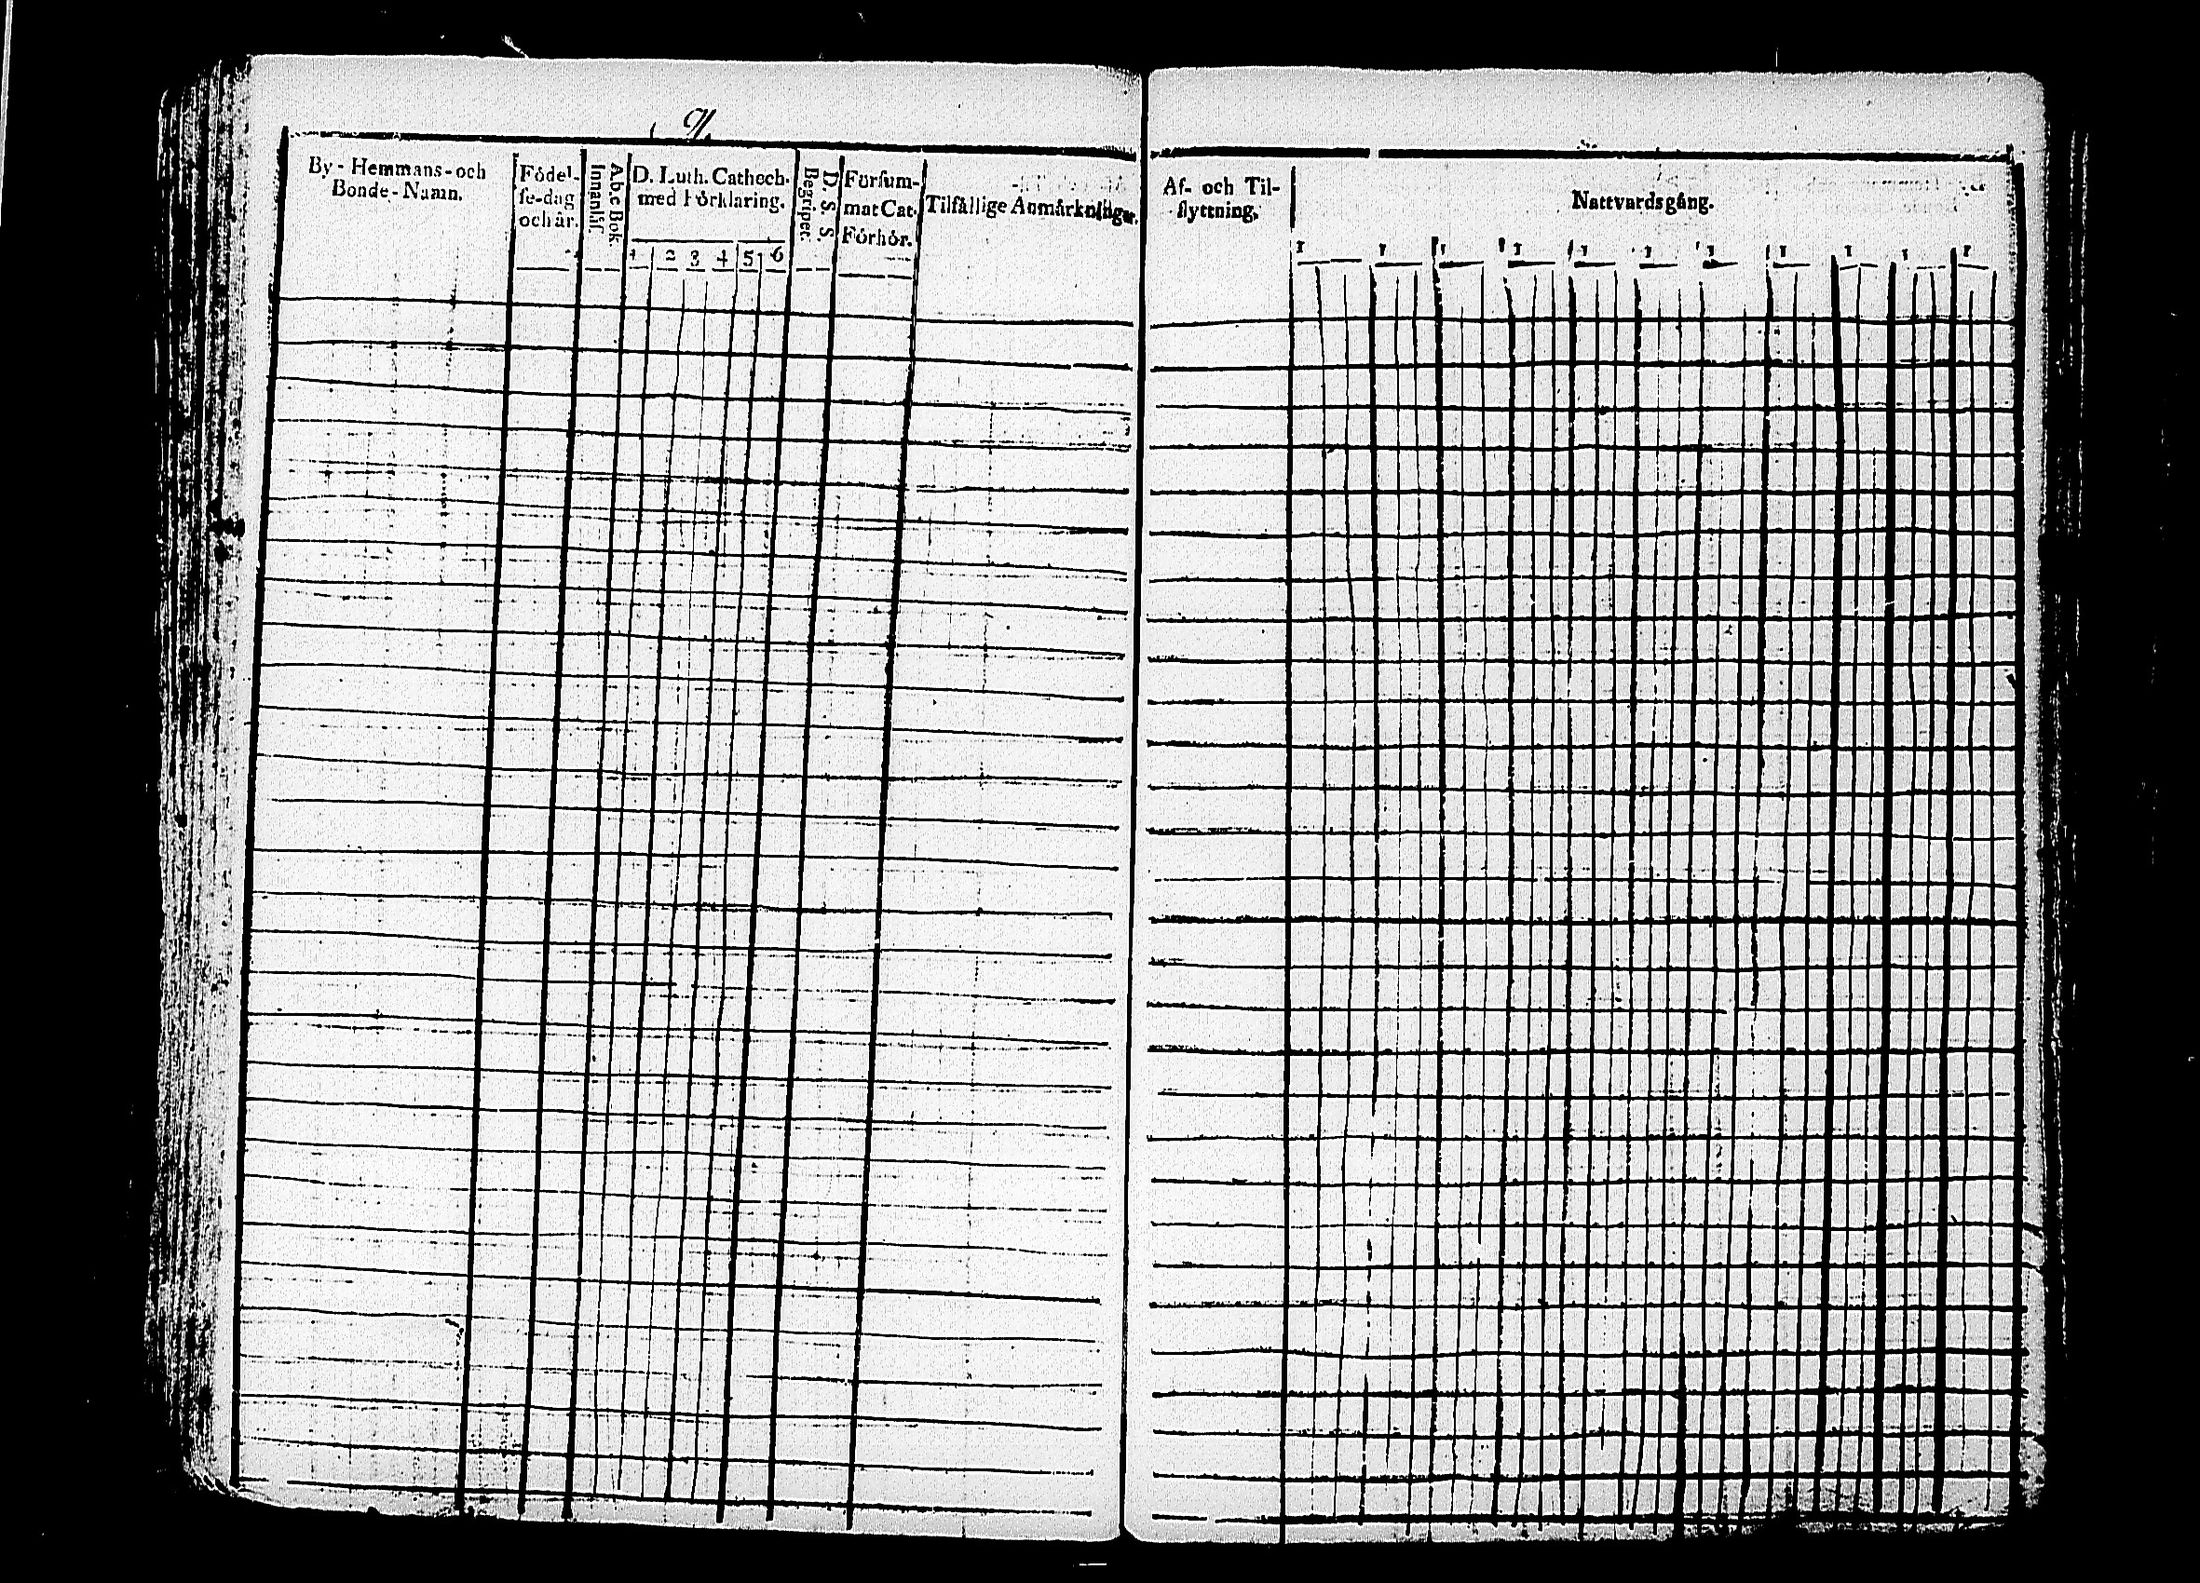 By-Hemmans-och
Bonde-Namn.
Födel-
se-dag
och år.
A.b.c Bok.
Innanläs.
D. Luth. Cathech.
med Förklaring.
1 2 3 4 5 6
D. S. S.
Begriper.
Försum-
mat Cat.
Förhör.
Tilfällige Anmärkningar.
Af- och Til-
flyttning.
Nattvardsgång.
1 1 1 1 1 1 1 1 1 1 1